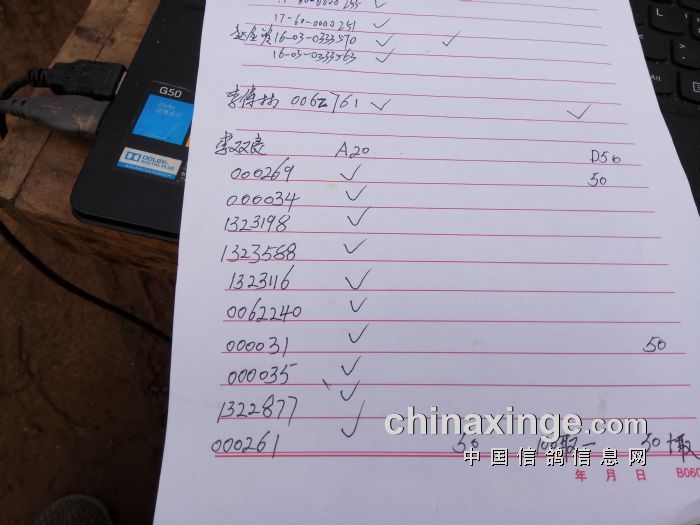 17-60-0000251 ✓
16-03-0333570 ✓ ✓
16-03-0333563 ✓
0062761 ✓ ✓
李双良 A20 D50
000269 ✓ 50
000034 ✓
1323198 ✓
1323588 ✓
1323116 ✓
0062240 ✓
000031 ✓ 50
000035 ✓
1322877 ✓
000261 ✓ 50 100取一 50
G50
DOLBY
DIGITAL PLUS
Alt
chinaxinge.com
中国信鸽信息网
年 月 日 B060